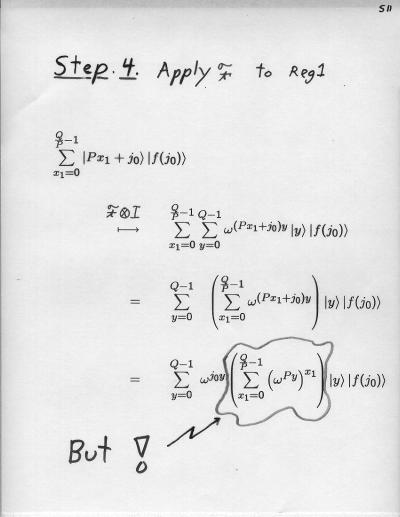 511
Step. 4. Apply ℱ̃ to Reg1
∑_{x₁=0}^{Q/P−1} |Px₁ + j₀⟩ |f(j₀)⟩
ℱ̃⊗I ⟼ ∑_{x₁=0}^{Q/P−1} ∑_{y=0}^{Q−1} ω^{(Px₁+j₀)y} |y⟩ |f(j₀)⟩
= ∑_{y=0}^{Q−1} ( ∑_{x₁=0}^{Q/P−1} ω^{(Px₁+j₀)y} ) |y⟩ |f(j₀)⟩
= ∑_{y=0}^{Q−1} ω^{j₀y} ( ∑_{x₁=0}^{Q/P−1} (ω^{Py})^{x₁} ) |y⟩ |f(j₀)⟩
But !